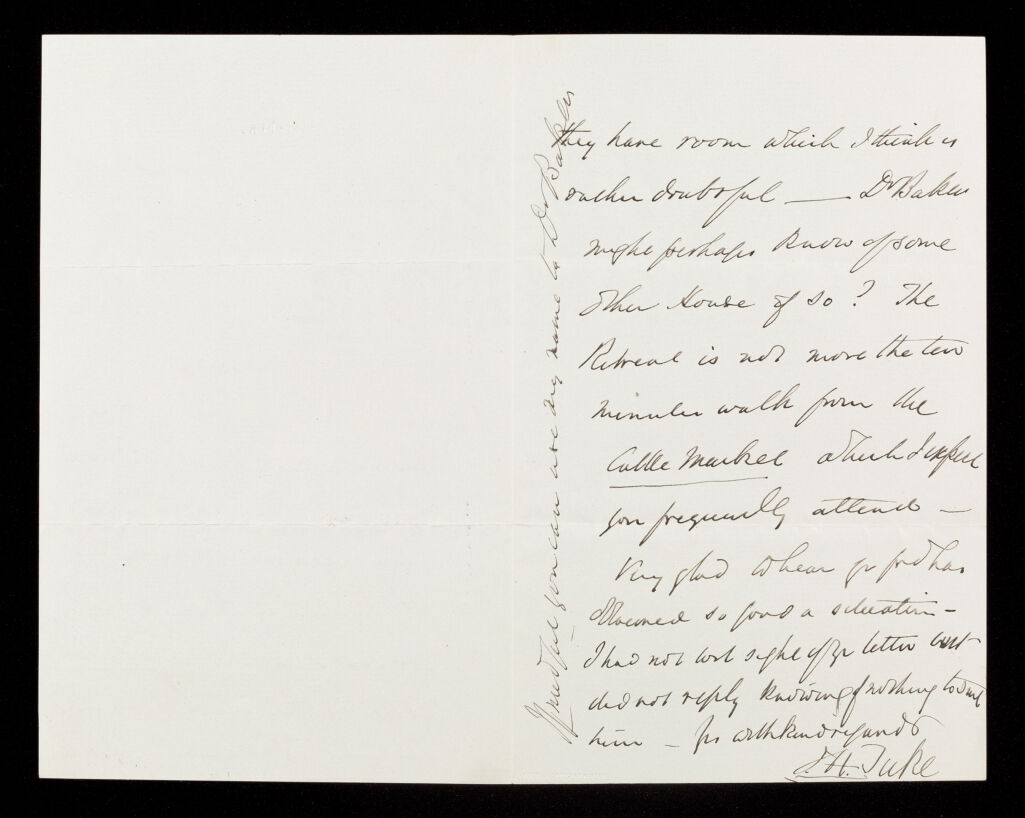 they have room which I think is
rather doubtful — Dr Baker
might perhaps know of some
other House if so? The
Retreat is not more the ten
minutes walk from the
Cattle Market which I expect
you frequently attend —
Very glad to hear yr frd has
obtained so good a situation —
I had not lost sight of yr letter but
did not reply knowing of nothing to suit
him — yrs with kind regards
J.H. Tuke
If needful you can use my name to Dr Baker